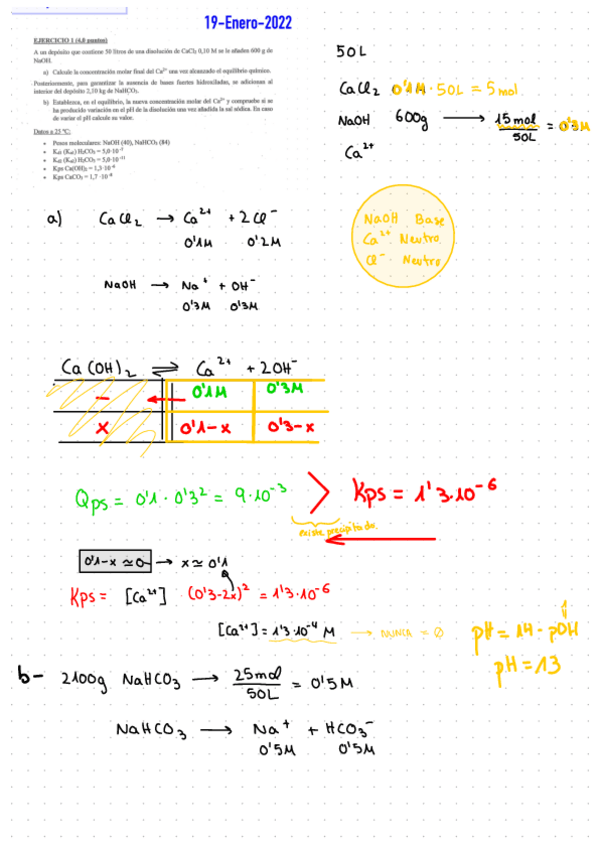 19-Enero-2022
EJERCICIO 1 (4,0 puntos)
A un depósito que contiene 50 litros de una disolución de CaCl₂ 0,10 M se le añades 600 g de
NaOH.
a) Calcule la concentración molar final del Ca²⁺ una vez alcanzado el equilibrio químico.
Posteriormente, para garantizar la ausencia de bases fuertes hidroxiladas, se adicionan al
interior del depósito 2,10 kg de NaHCO₃.
b) Establezca, en el equilibrio, la nueva concentración molar del Ca²⁺ y compruebe si se
ha producido variación en el pH de la disolución una vez añadida la sal sódica. En caso
de variar el pH calcule su valor.
Datos a 25 ºC:
• Pesos moleculares: NaOH (40), NaHCO₃ (84)
• Kₐ₁ H₂CO₃ = 5,0·10⁻⁷
• Kₐ₂ H₂CO₃ = 5,0·10⁻¹¹
• Kps Ca(OH)₂ = 1,3·10⁻⁶
• Kps CaCO₃ = 1,7·10⁻⁸
50L
CaCl₂ 0'1M · 50L = 5mol
NaOH 600g → 15mol/50L = 0'3M
Ca²⁺
a) CaCl₂ → Ca²⁺ + 2Cl⁻
0'1M 0'2M
NaOH Base
Ca²⁺ Neutro
Cl⁻ Neutro
NaOH → Na⁺ + OH⁻
0'3M 0'3M
Ca(OH)₂ ⇌ Ca²⁺ + 2OH⁻
– 0'1M 0'3M
x 0'1-x 0'3-x
Qps = 0'1 · 0'3² = 9·10⁻³ > Kps = 1'3·10⁻⁶
existe precipitado.
0'1-x ≃ 0 → x ≃ 0'1
Kps = [Ca²⁺] (0'3-2x)² = 1'3·10⁻⁶
[Ca²⁺] = 1'3·10⁻⁴ M → nunca = 0
pH = 14 - pOH
1
pH = 13
b- 2100g NaHCO₃ → 25mol/50L = 0'5M
NaHCO₃ → Na⁺ + HCO₃⁻
0'5M 0'5M